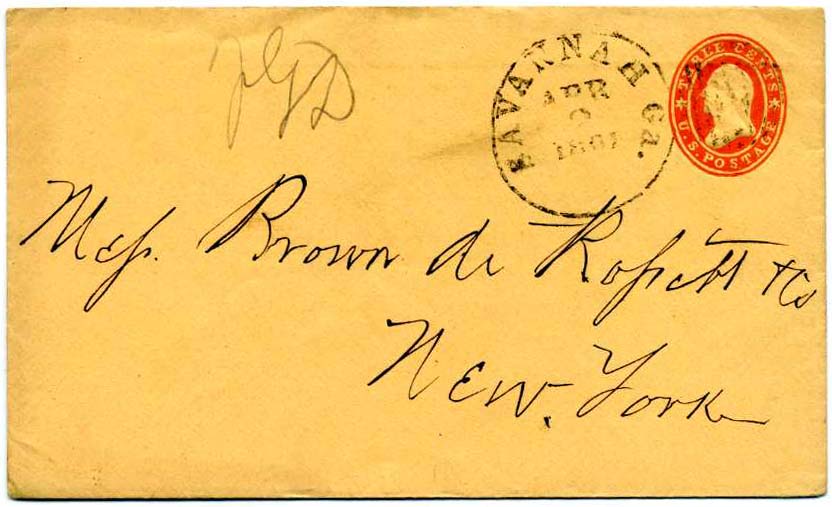 JGD
SAVANNAH Ga.
APR
2
1861
THREE CENTS
U.S. POSTAGE
Mess. Brown de Rossett & Co
New. York